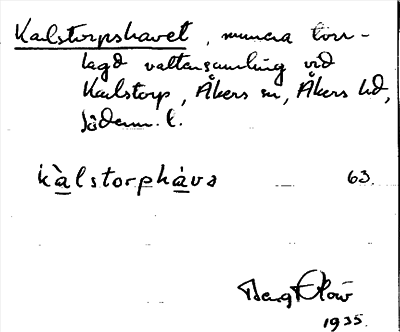 Kalstorpshavet, numera torr-
lagd vattensamling vid
Karlstorp, Åkers sn, Åkers hd,
Söderm. l.
kàlstorphàva 63.
Bengt
1935.